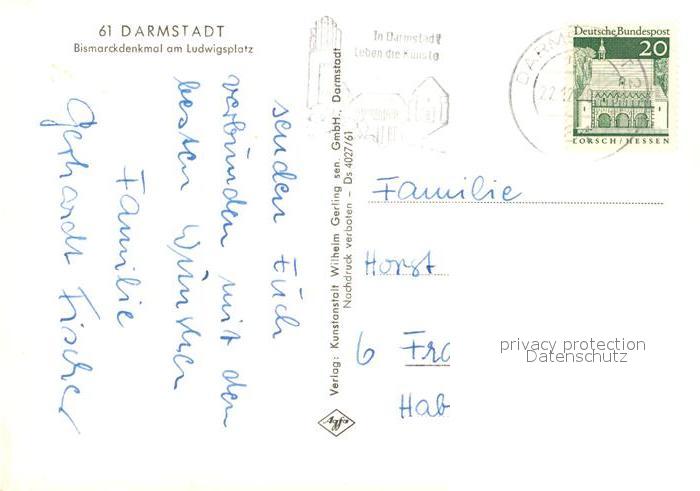 61 DARMSTADT
Bismarckdenkmal am Ludwigsplatz
senden Euch
verbunden mit den
besten Wünschen
Familie
Gerhardt Fischer
Verlag: Kunstanstalt Wilhelm Gerling sen. GmbH., Darmstadt
Nachdruck verboten – Ds 4027/61
Agfa
In Darmstadt
Leben die Künste
DARMS
22.12
Deutsche Bundespost
20
LORSCH/HESSEN
Familie
Horst
6 Fra
Hab
privacy protection
Datenschutz